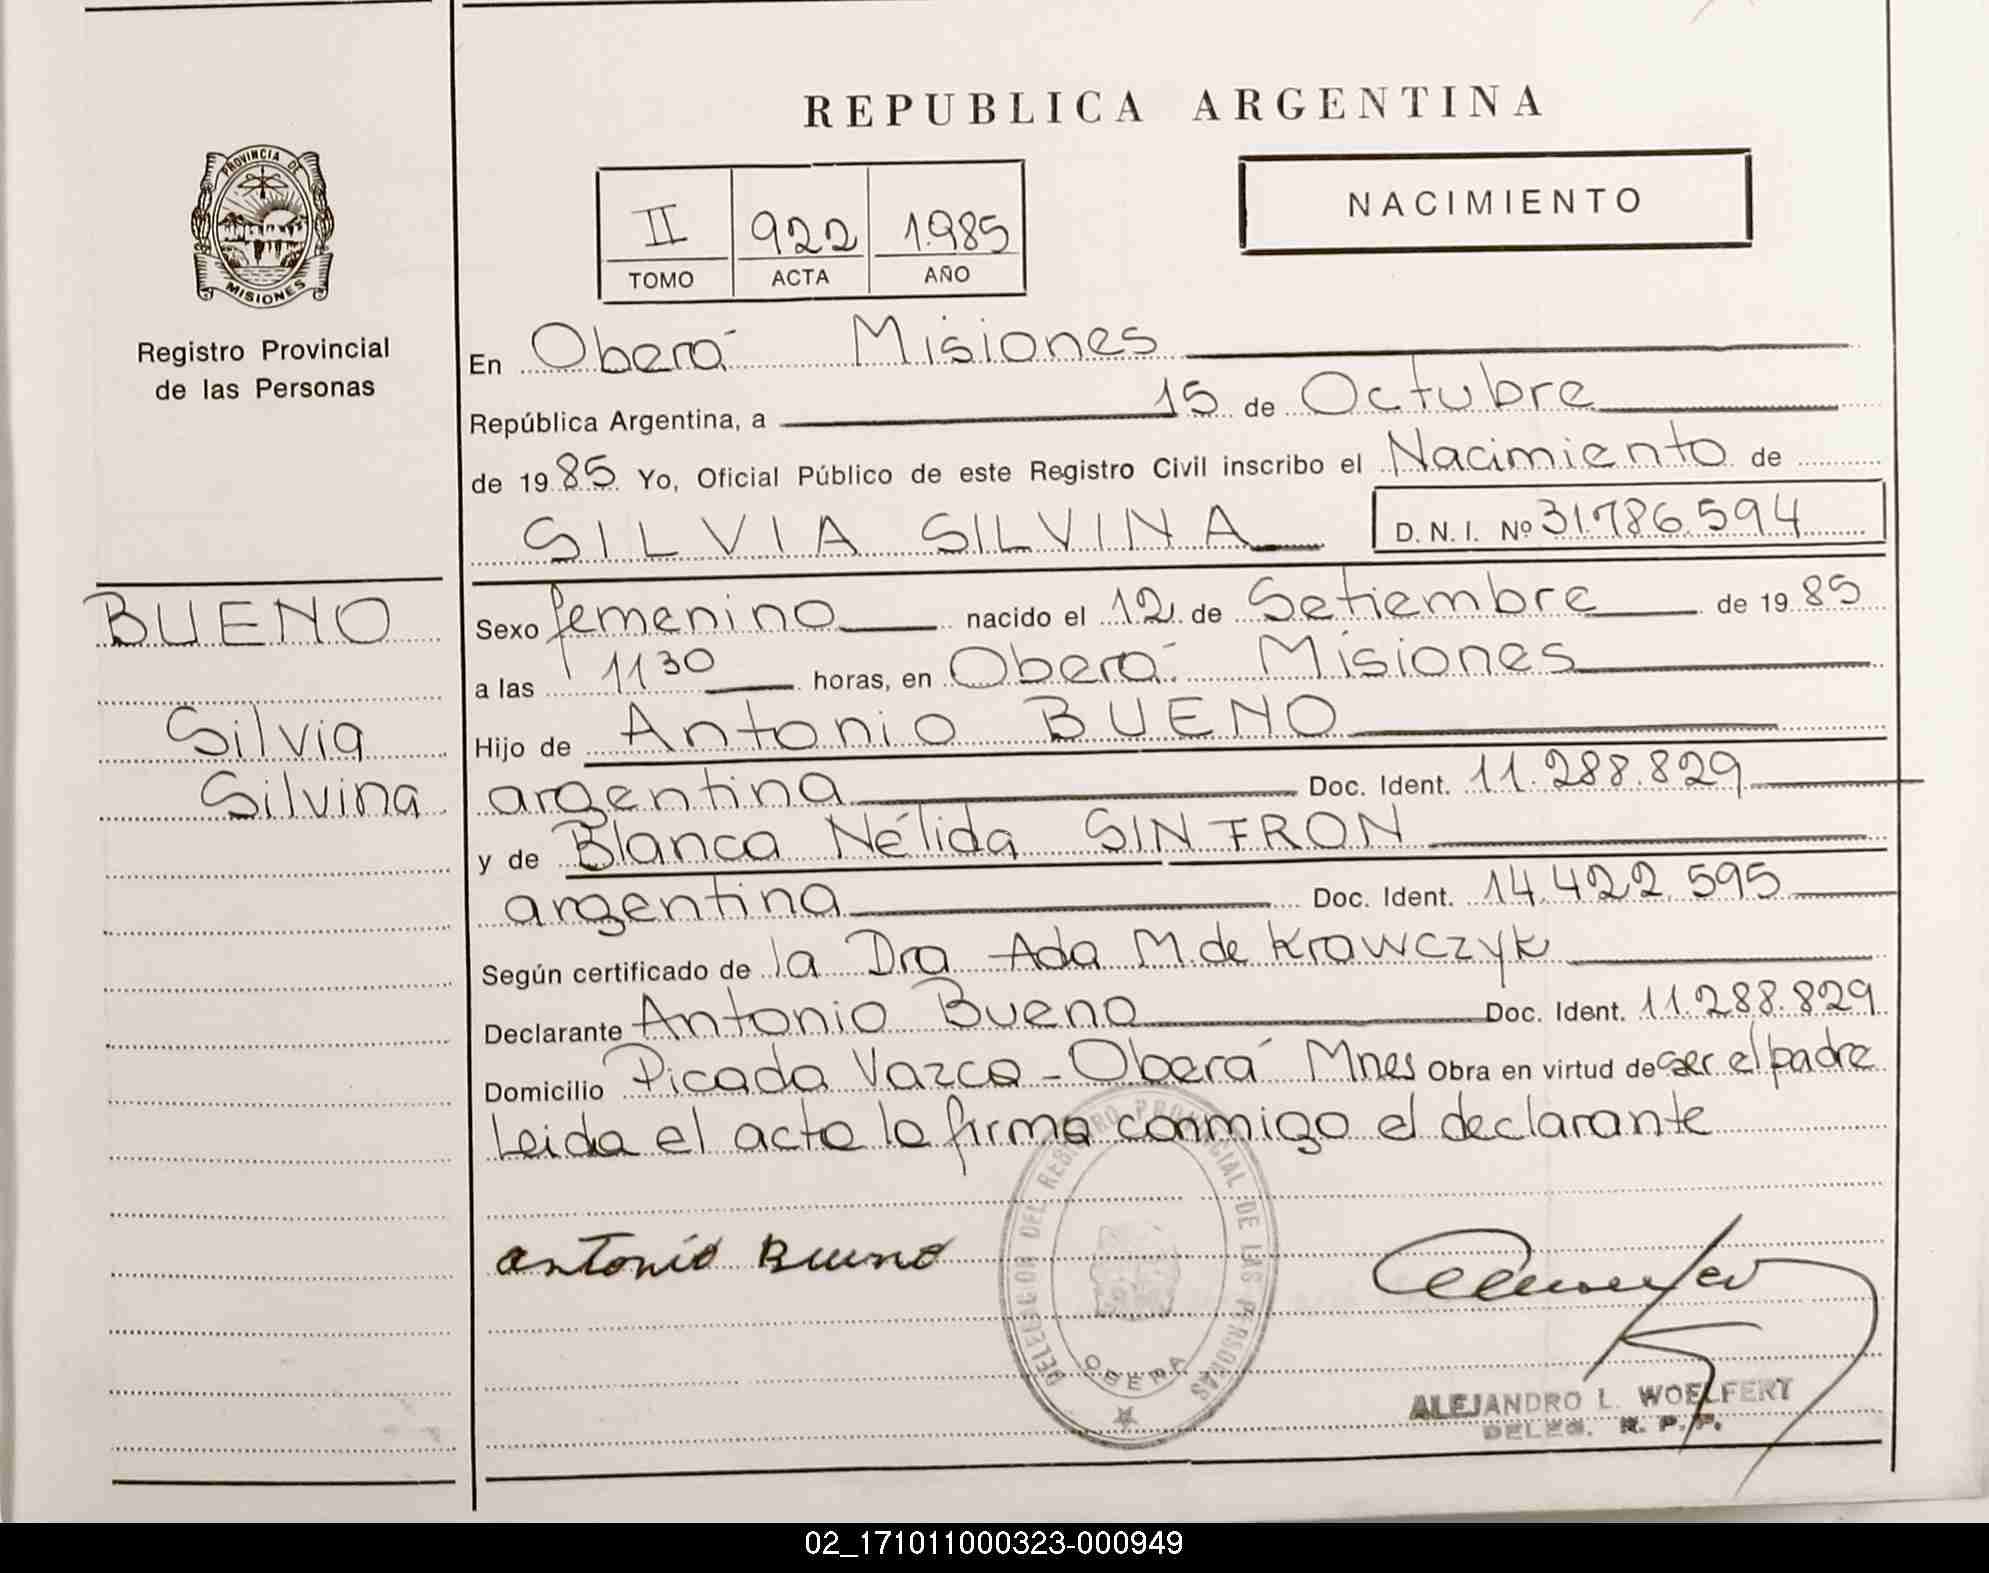 REPUBLICA ARGENTINA
PROVINCIA DE
MISIONES
Registro Provincial
de las Personas
II 922 1.985
TOMO ACTA AÑO
NACIMIENTO
En Oberá Misiones
República Argentina, a 15 de Octubre
de 1985 Yo, Oficial Público de este Registro Civil inscribo el Nacimiento de
SILVIA SILVINA D. N. I. Nº 31.786.594
BUENO
Silvia
Silvina
Sexo femenino nacido el 12 de Setiembre de 1985
a las 11 30 horas, en Oberá Misiones
Hijo de Antonio BUENO
argentina Doc. Ident. 11.288.829
y de Blanca Nélida SINFRON
argentina Doc. Ident. 14.422.595
Según certificado de la Dra Ada M. de Krawczyk
Declarante Antonio Bueno Doc. Ident. 11.288.829
Domicilio Picada Vazca - Oberá Mnes Obra en virtud de ser el padre
Leida el acta la firma conmigo el declarante
Antonio Bueno
DELEGCION DEL REGISTRO PROVINCIAL DE LAS PERSONAS
OBERA
ALEJANDRO L. WOELFERT
DELEG. R. P. P.
02_171011000323-000949